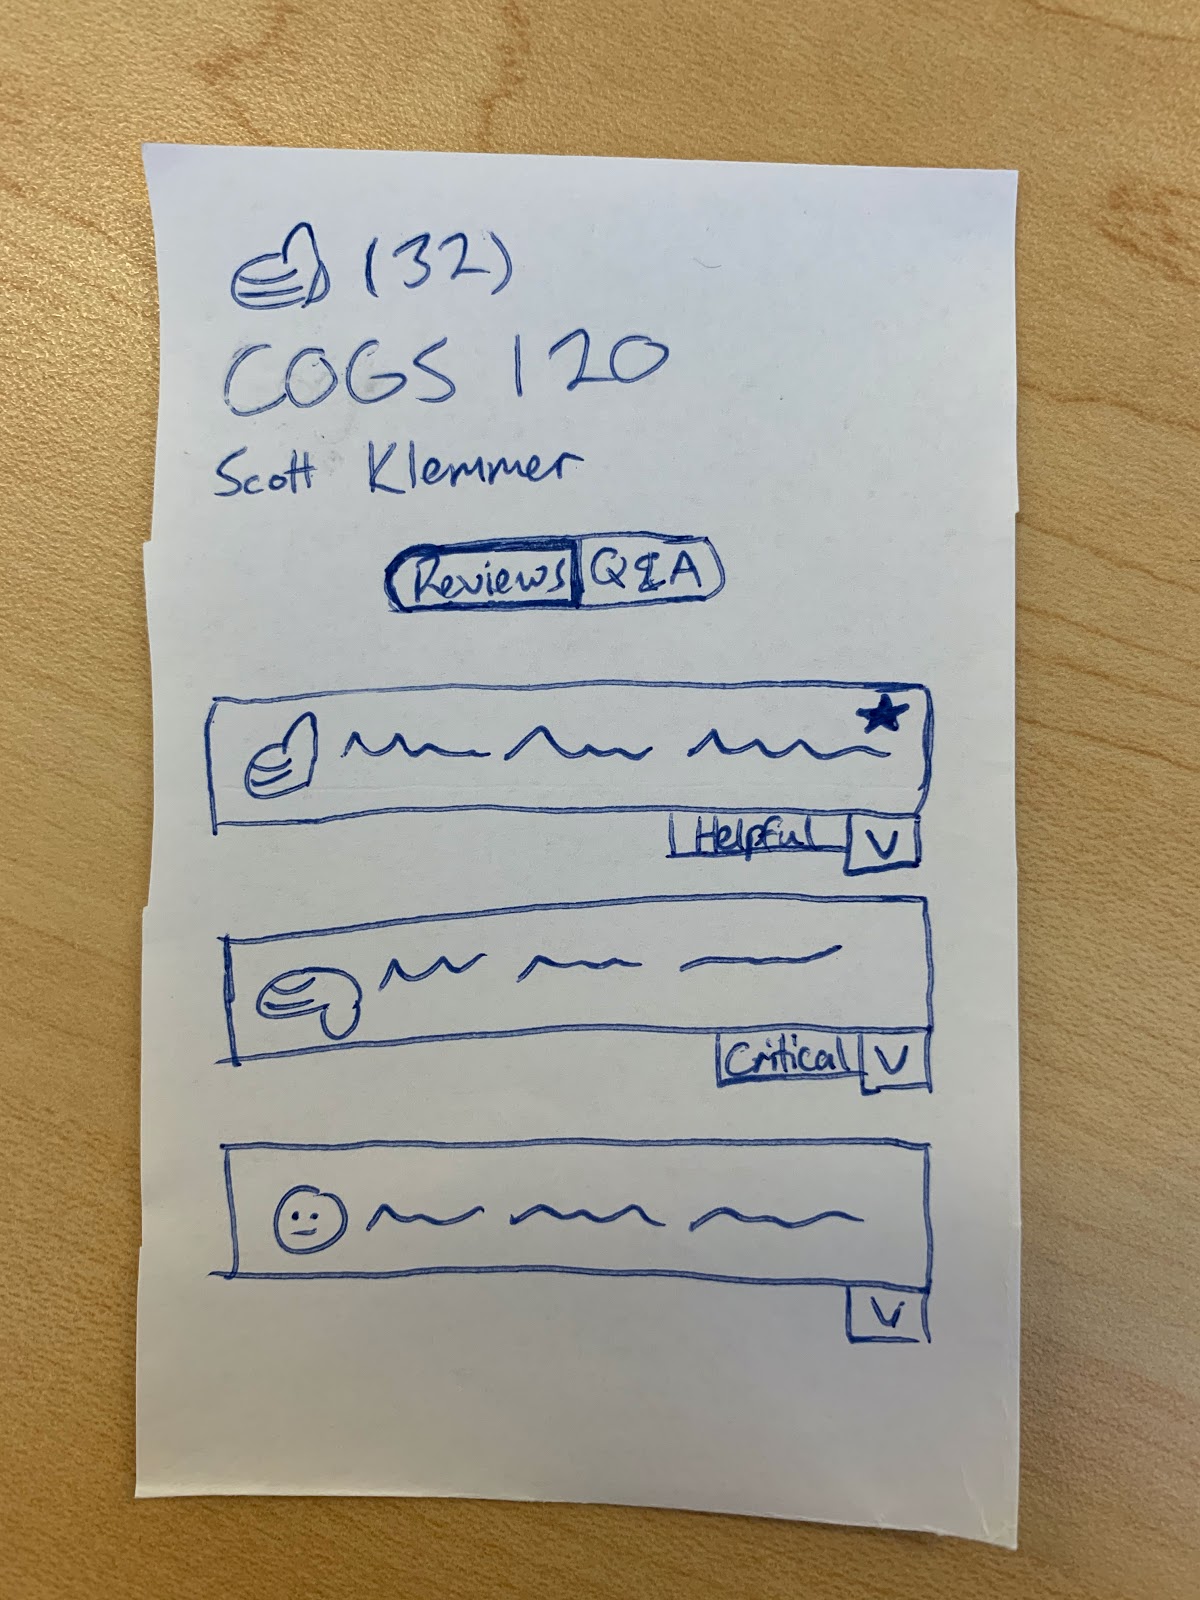 (32)
COGS 120
Scott Klemmer
Reviews Q&A
Helpful V
Critical V
V